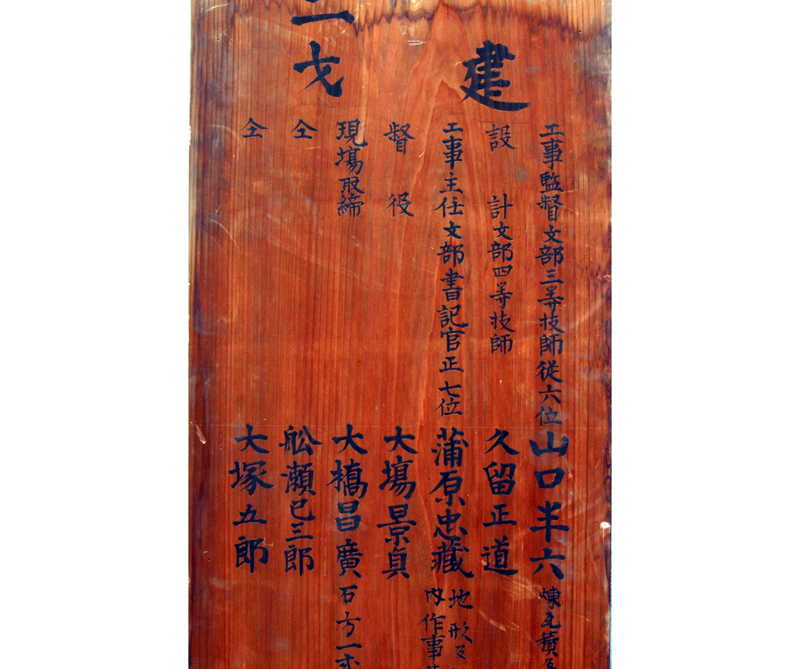 建
工事監督文部三等技師従六位山口半六煉瓦積
設計文部四等技師久留正道
工事主任文部書記官正七位蒲原忠藏地形及
内作事
督役大塲景貞
現塲取締大橋昌廣石方一式
仝舩瀬巳三郎
仝大塚五郎